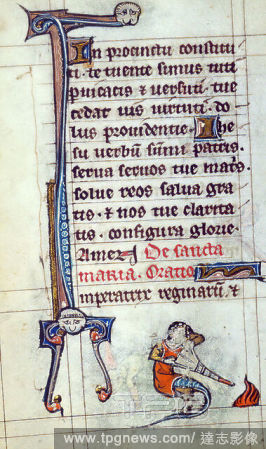 In procinctu constituti
ti. te tuente simus tuti
puicacis & versuti. tue
cedat vis virtuti. do
lus prouidentie. Ihe
su verbum summi patris.
serua seruos tue matris.
solue reos salua gra
tis. & nos tue clarita
tis. configura glorie.
Amen. De sancta
maria. Oratio
imperatrix reginarum. &
www.tpgnews.com/達志影像